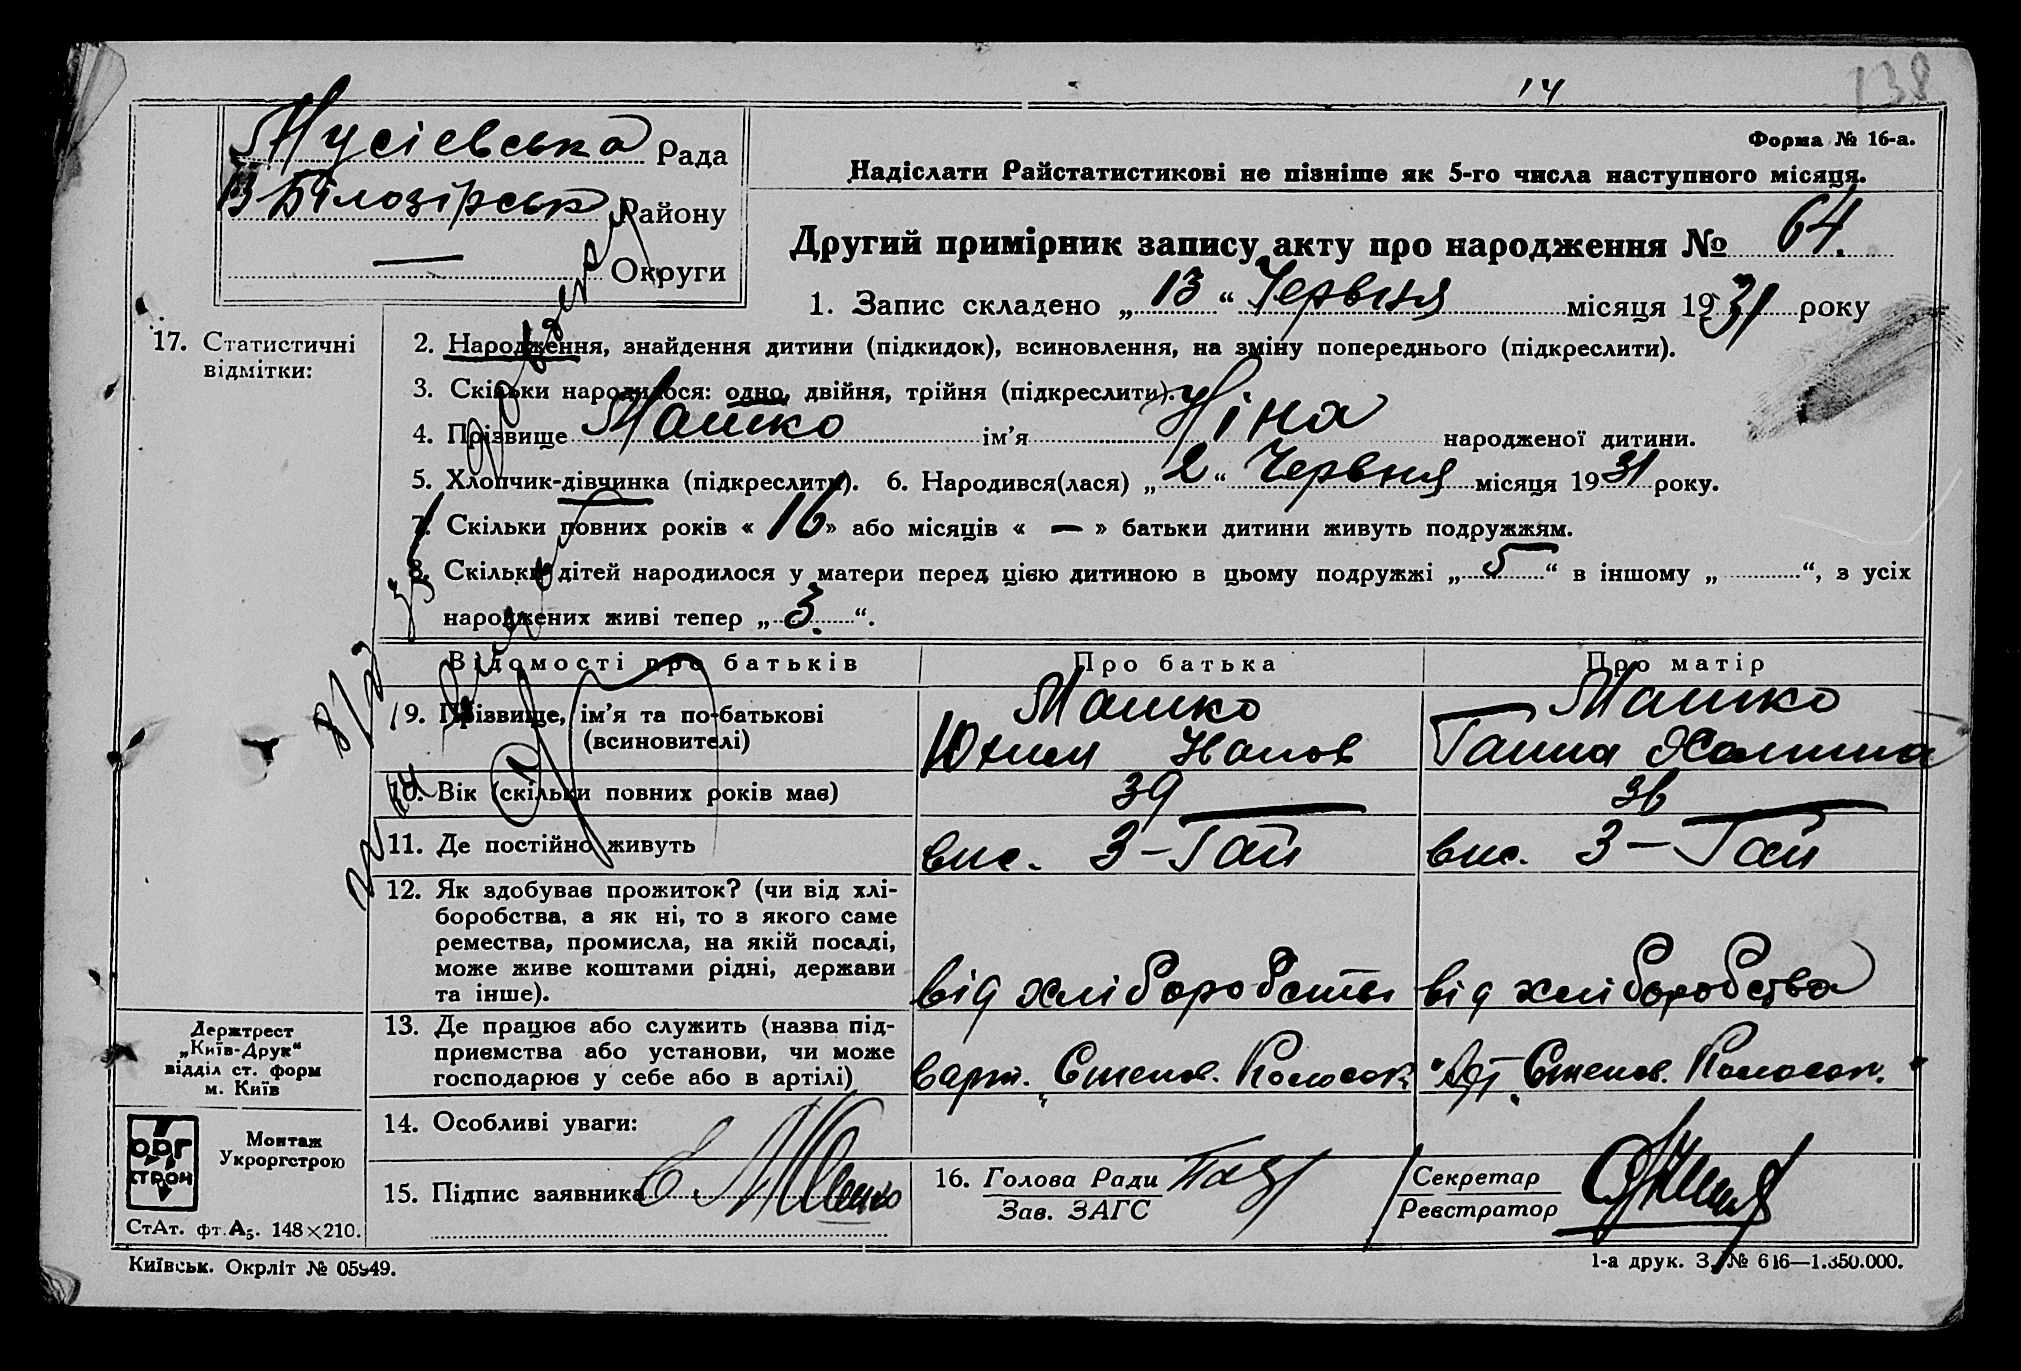 14
138
Мусіевська Рада
В-Білозірськ Району
— Округи
Форма № 16-а.
Надіслати Райстатистикові не пізніше як 5-го числа наступного місяця.
Другий примірник запису акту про народження № 64.
1. Запис складено „13“ Червня місяця 1931 року
17. Статистичні
відмітки:
2. Народження, знайдення дитини (підкидок), всиновлення, на зміну попереднього (підкреслити).
3. Скільки народилося: одно, двійня, трійня (підкреслити).
4. Прізвище Машко ім’я Ніна народженої дитини.
5. Хлопчик-дівчинка (підкреслити). 6. Народився(лася) „2“ Червня місяця 1931 року.
7. Скільки повних років «16» або місяців « — » батьки дитини живуть подружжям.
8. Скільки дітей народилося у матери перед цією дитиною в цьому подружжі „5“ в іншому „ “, з усіх
народжених живі тепер „3.“.
Відомості про батьків Про батька Про матір
9. Прізвище, ім’я та по-батькові
(всиновителі)
Машко
Юхим
Машко
Ганна
10. Вік (скільки повних років має) 39 36
11. Де постійно живуть вис. З-Гай вис. З-Гай
12. Як здобуває прожиток? (чи від хлі-
боробства, а як ні, то з якого саме
ремества, промисла, на якій посаді,
може живе коштами рідні, держави
та інше).
від хліборобства від хліборобства
13. Де працює або служить (назва під-
приємства або установи, чи може
господарює у себе або в артілі)
в арт. Степов. Колосок Арт. Степов. Колосок.
14. Особливі уваги:
15. Підпис заявника
16. Голова Ради
Зав. ЗАГС
Секретар
Реєстратор
Держтрест
„Київ-Друк“
відділ ст. форм
м. Київ
ОРГ
СТРОМ
Монтаж
Укроргстрою
СтАт. фт. А₅. 148×210.
Київськ. Окрліт № 05949.
1-а друк. З. № 616—1.350.000.